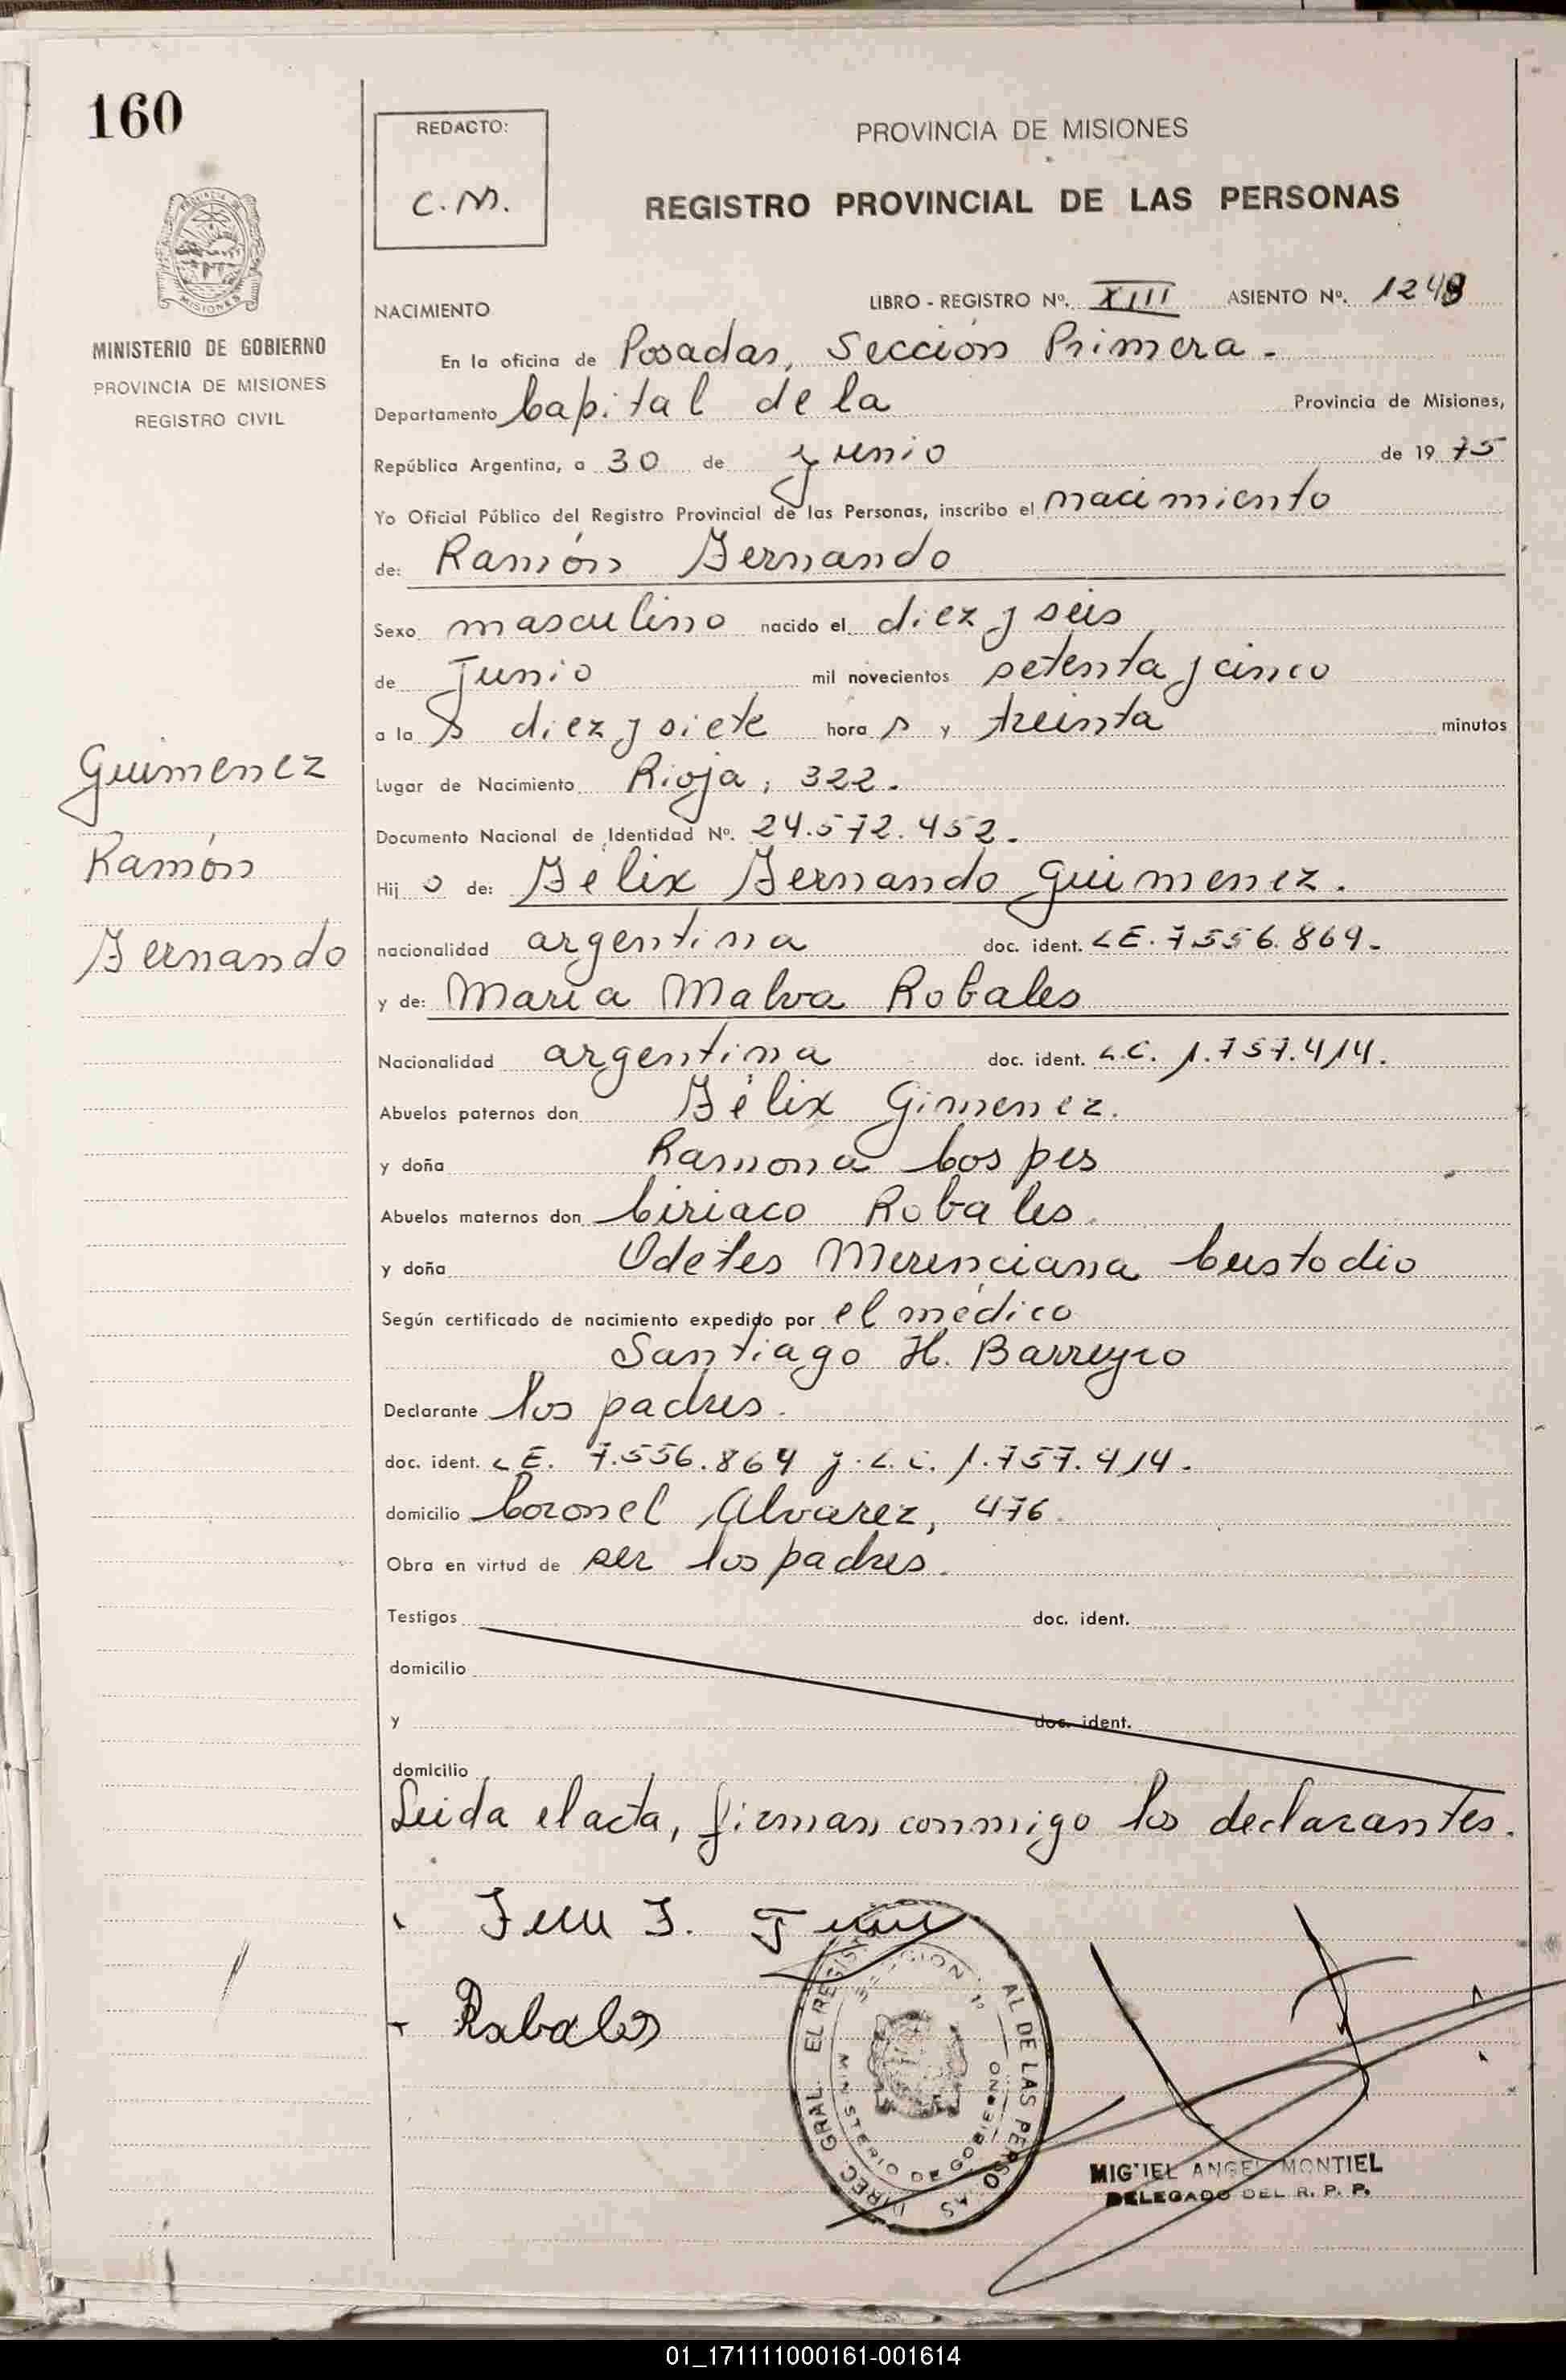 160
REDACTO:
C.M.
PROVINCIA DE MISIONES
REGISTRO PROVINCIAL DE LAS PERSONAS
MISIONES
MINISTERIO DE GOBIERNO
PROVINCIA DE MISIONES
REGISTRO CIVIL
NACIMIENTO LIBRO - REGISTRO Nº. XIII ASIENTO Nº. 1248
En la oficina de Posadas, Sección Primera.-
Departamento Capital de la Provincia de Misiones,
República Argentina, a 30 de junio de 1975
Yo Oficial Público del Registro Provincial de las Personas, inscribo el nacimiento
de: Ramón Fernando
Sexo masculino nacido el diez y seis
de Junio mil novecientos setenta y cinco
a las diez y siete horas y treinta minutos
Guimenez
Ramón
Fernando
Lugar de Nacimiento Rioja, 322.
Documento Nacional de Identidad Nº. 24.572.452.
Hijo de: Félix Fernando Guimenez.
nacionalidad argentina doc. ident. LE. 7.556.869.
y de: María Malva Robales
Nacionalidad argentina doc. ident. L.C. 1.757.414.
Abuelos paternos don Félix Gimenez.
y doña Ramona Cospes
Abuelos maternos don Ciriaco Robales.
y doña Odetes Merenciana Custodio
Según certificado de nacimiento expedido por el médico
Santiago H. Barreyro
Declarante los padres.
doc. ident. LE. 7.556.869 y L.C. 1.757.414.
domicilio Coronel Alvarez, 476.
Obra en virtud de ser los padres.
Testigos doc. ident.
domicilio
y doc. ident.
domicilio
Leida el acta, firman conmigo los declarantes.
Robales
DIREC. GRAL. EL REGIST AL DE LAS PERSO AS
SECCION 1º
MINISTERIO DE GOBIERNO
MIGUEL ANGEL MONTIEL
DELEGADO DEL R. P. P.
01_171111000161-001614